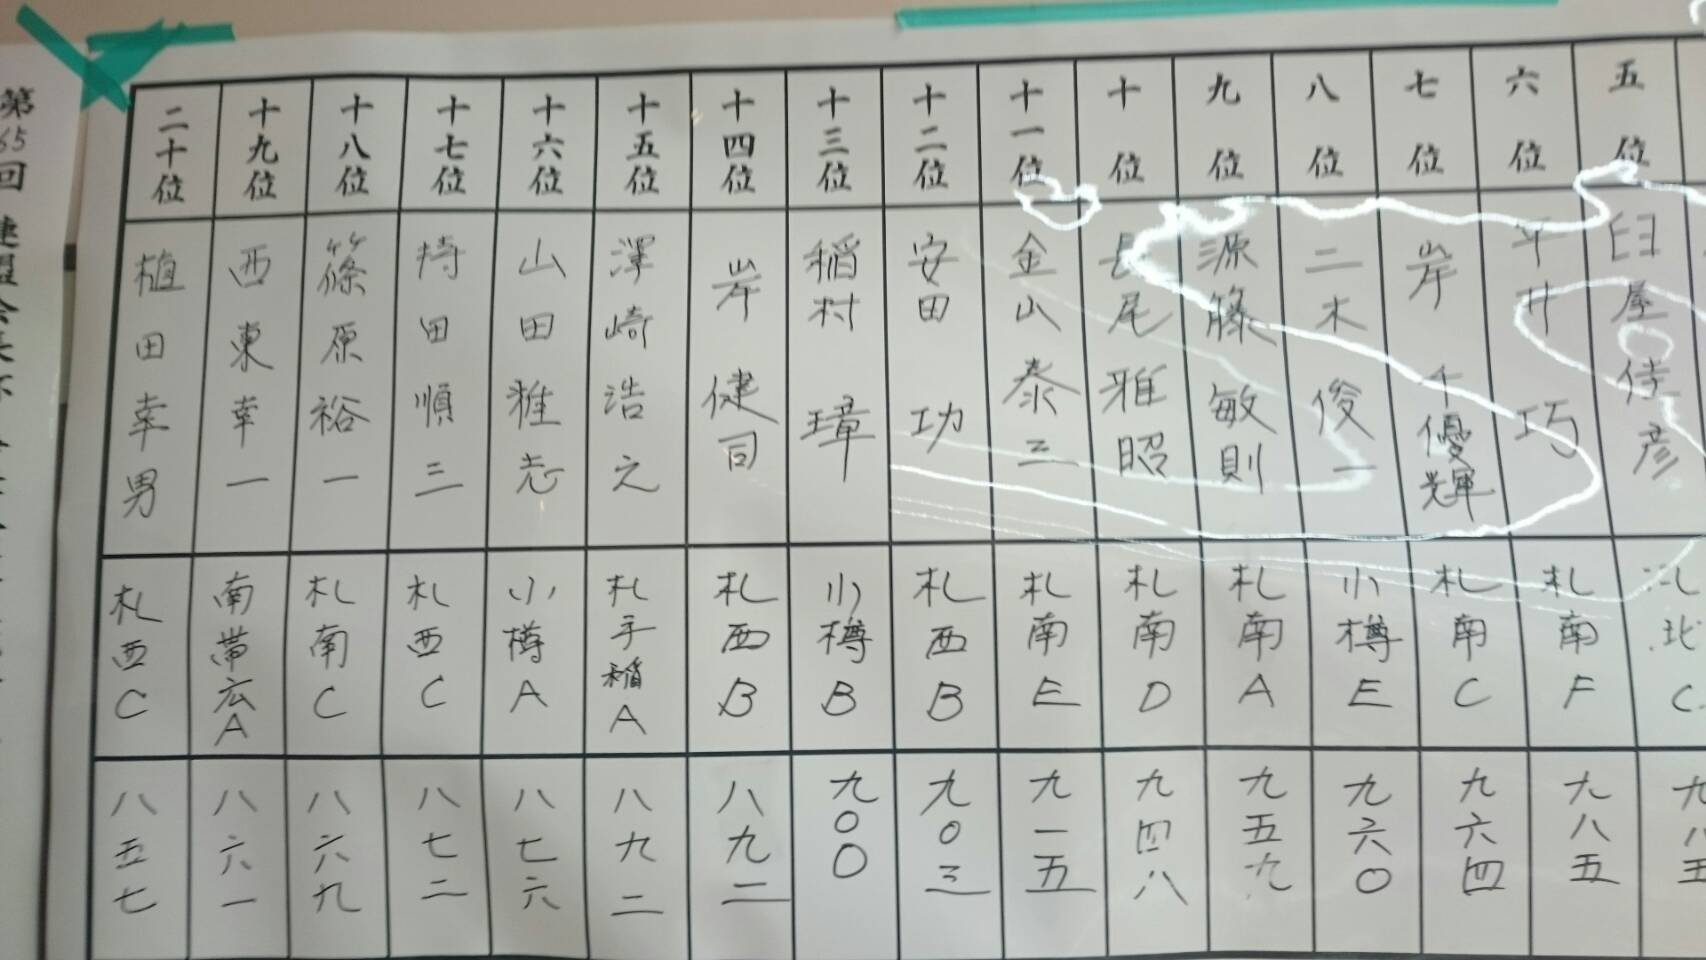 五位
臼屋佳彦
北C
九八五
六位
平井巧
札南F
九八五
七位
岸千優輝
札南C
九六四
八位
二木俊一
小樽E
九六〇
九位
源藤敏則
札南A
九五九
十位
長尾雅昭
札南D
九四八
十一位
金山泰三
札南E
九一五
十二位
安田功
札西B
九〇三
十三位
稲村璋
小樽B
九〇〇
十四位
岸健司
札西B
八九二
十五位
澤崎浩之
札手稲A
八九二
十六位
山田雅志
小樽A
八七六
十七位
持田順三
札西C
八七二
十八位
篠原裕一
札南C
八六九
十九位
西東幸一
南帯広A
八六一
二十位
植田幸男
札西C
八五七
第65回 連盟会長杯